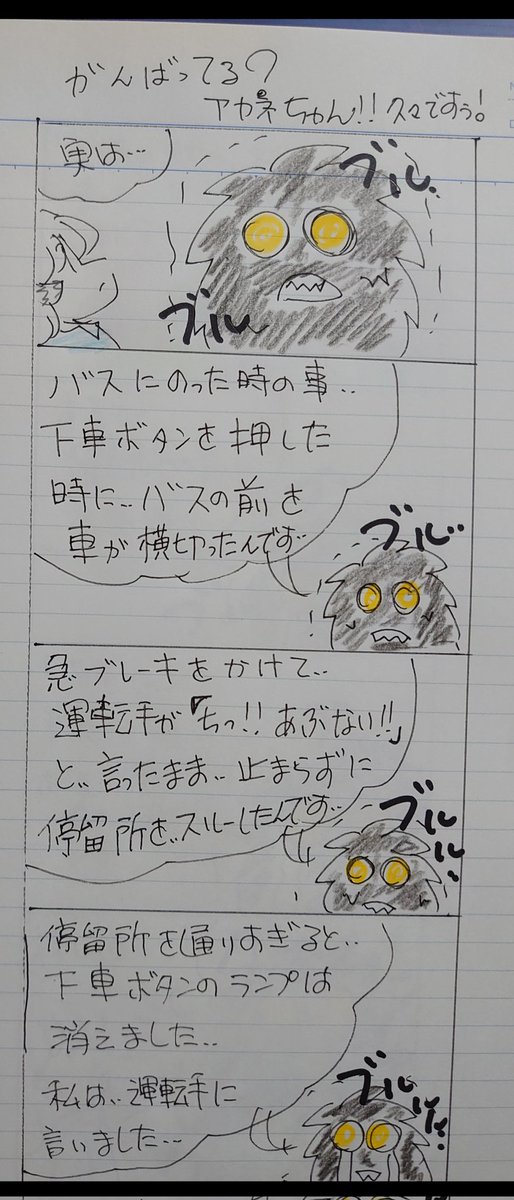 がんばってる?
アカネちゃん!!久々ですぅ!
実は…
ブルッ
ブルッ
バスにのった時の事..
下車ボタンを押した
時に..バスの前を
車が横切ったんです…
ブルッ
急ブレーキをかけて..
運転手が『ちっ!!あぶない!!』
と..言ったまま..止まらずに
停留所を..スルーしたんです…
ブルルル..
停留所を通りすぎると..
下車ボタンのランプは
消えました..
私は..運転手に
言いました…
ブルルル..